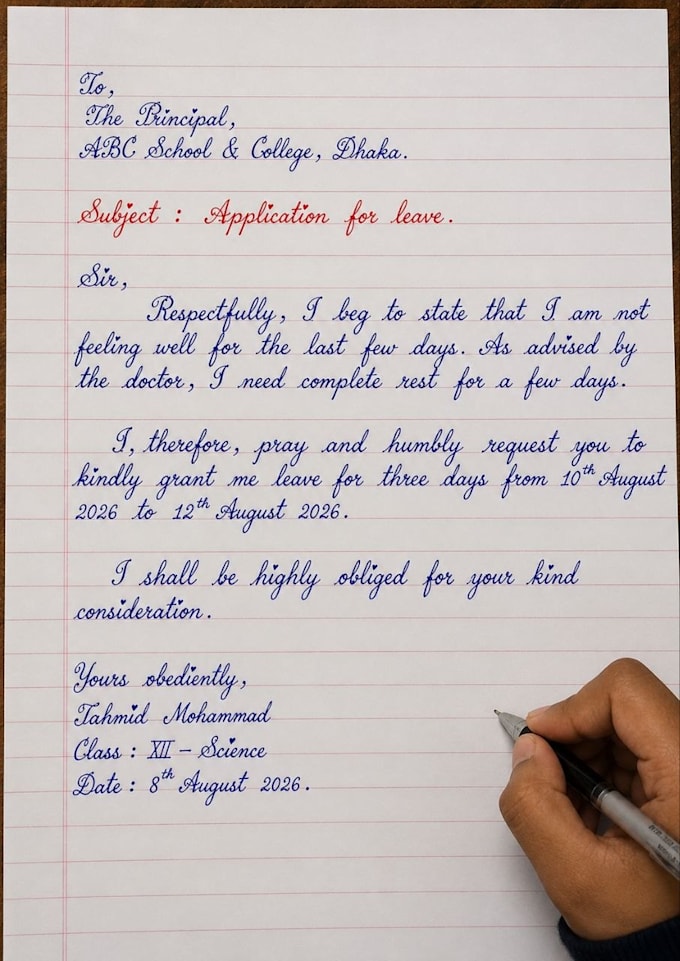 To,
The Principal,
ABC School & College, Dhaka.
Subject : Application for leave.
Sir,
Respectfully, I beg to state that I am not
feeling well for the last few days. As advised by
the doctor, I need complete rest for a few days.
I, therefore, pray and humbly request you to
kindly grant me leave for three days from 10th August
2026 to 12th August 2026.
I shall be highly obliged for your kind
consideration.
Yours obediently,
Tahmid Mohammad
Class : XII – Science
Date : 8th August 2026.